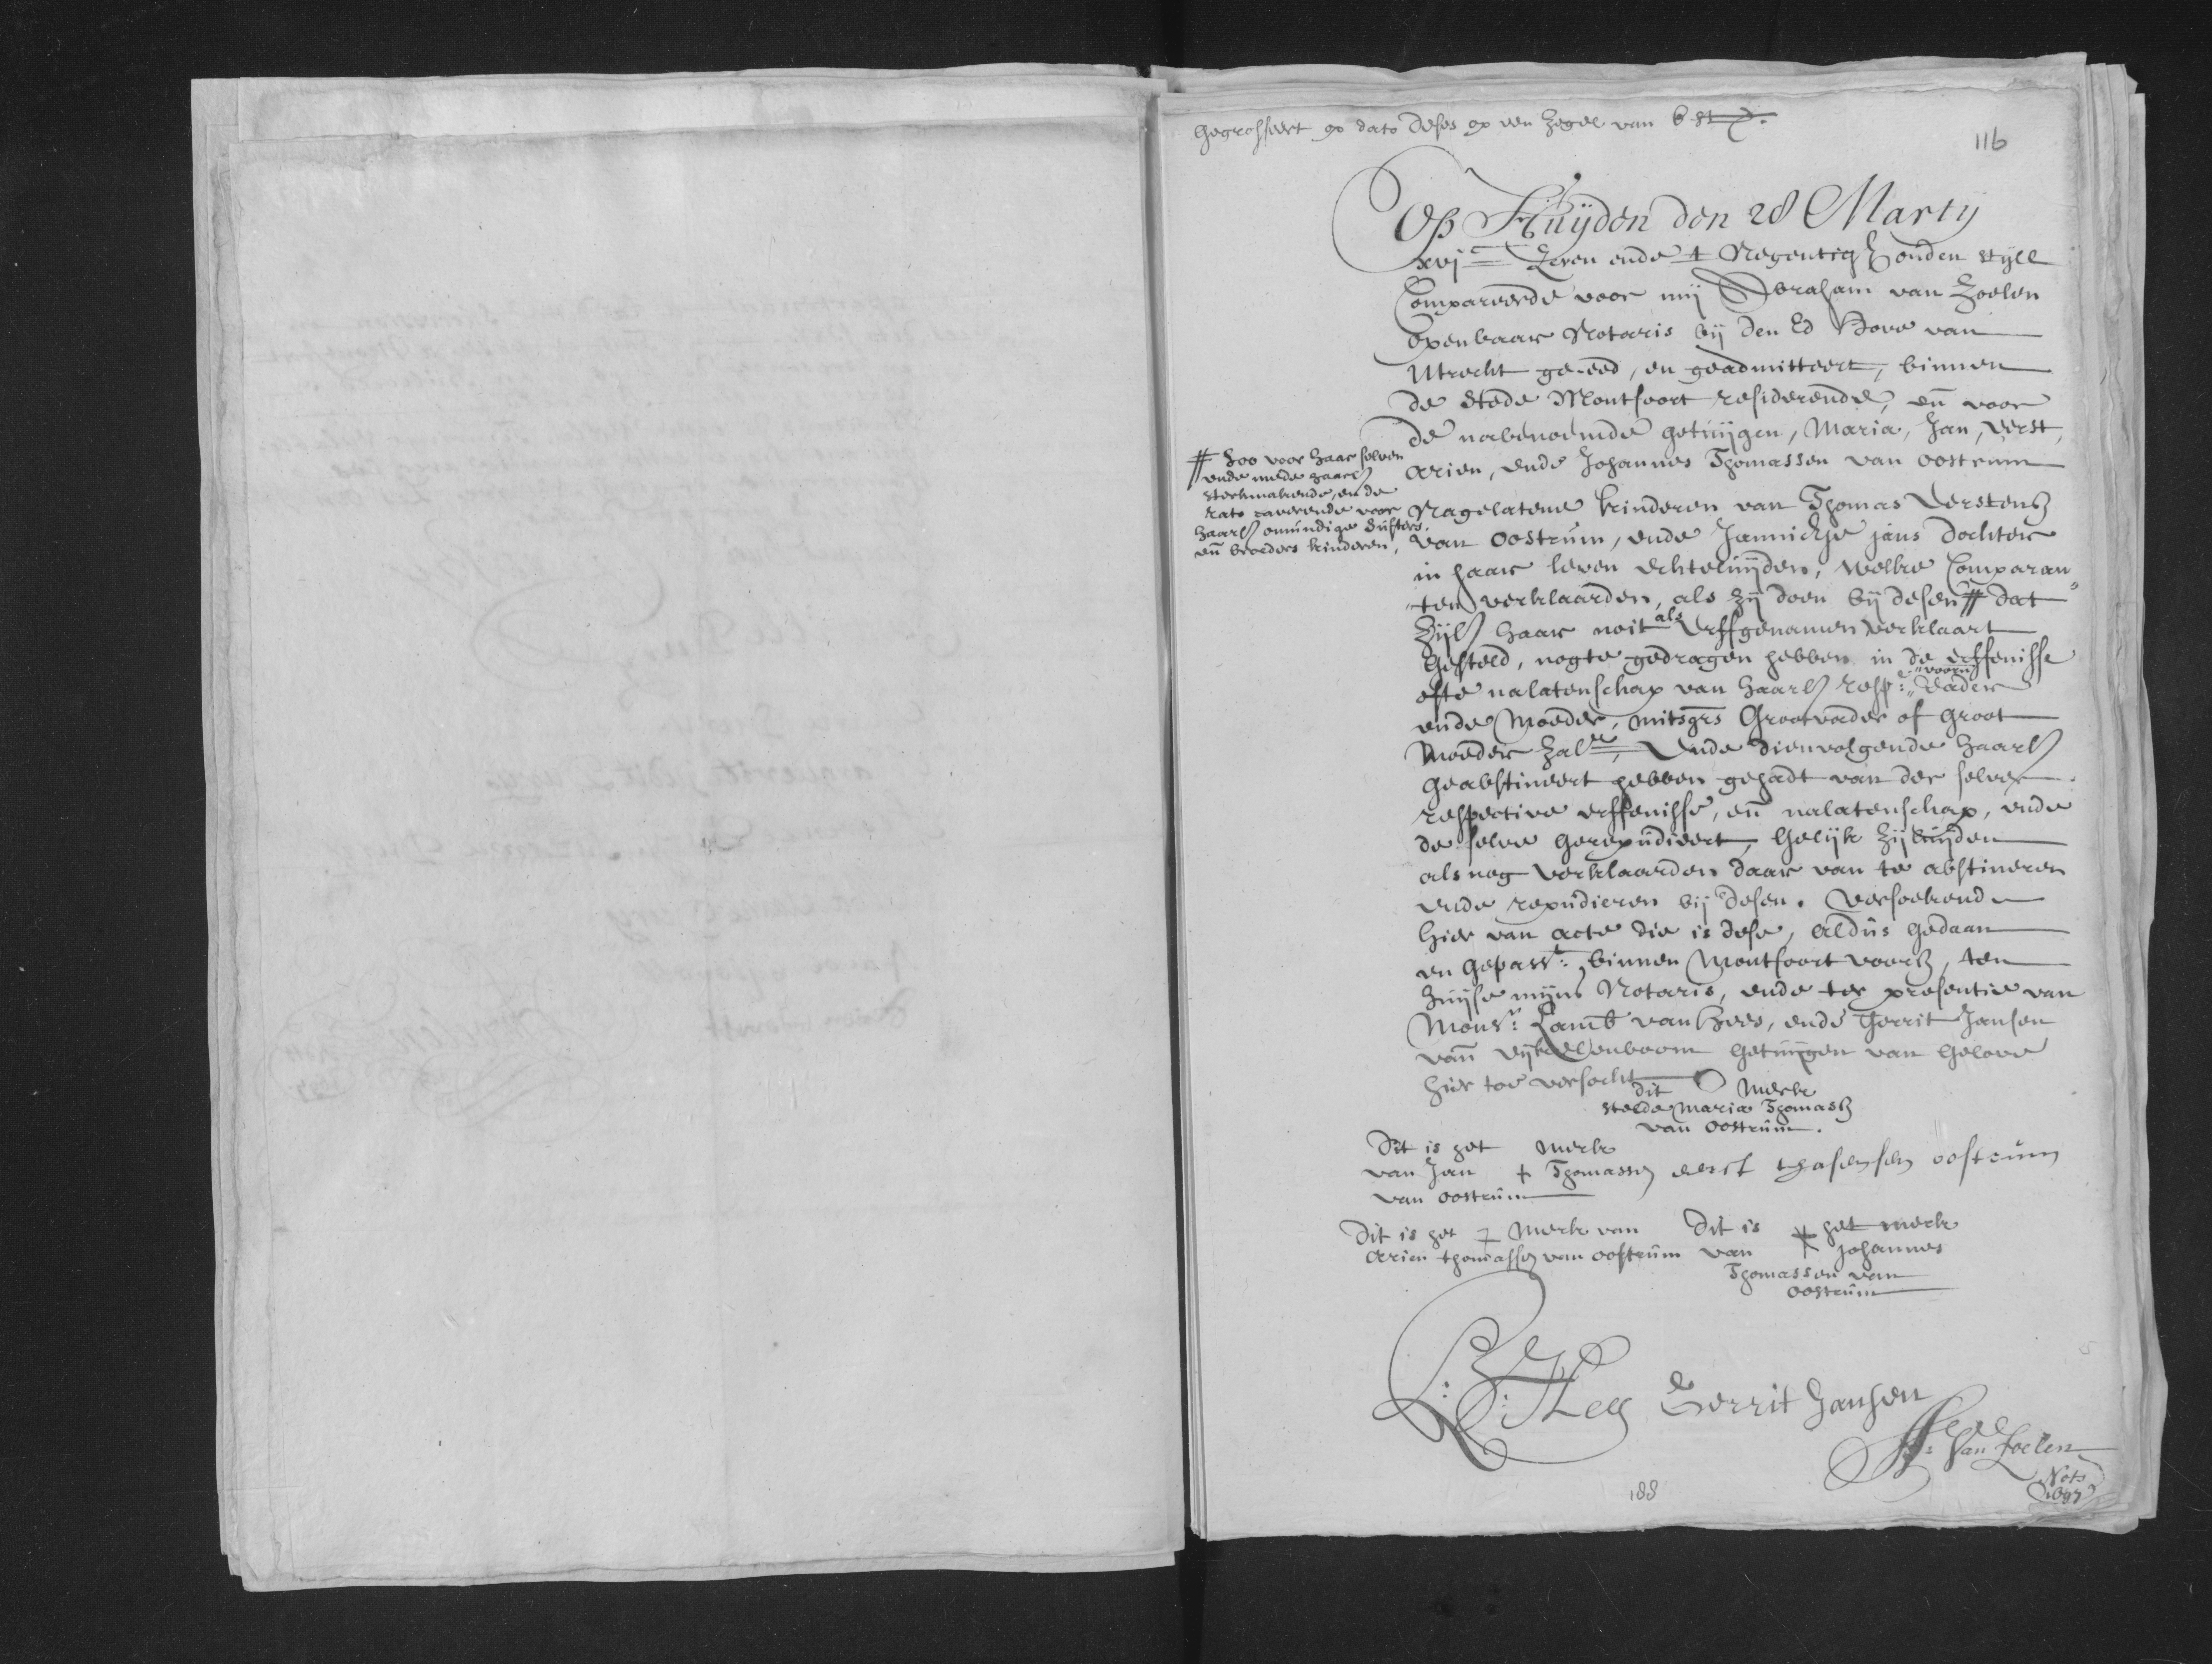 Gegrosseert op dato deses op een Zegel van 6 st
116
Op Huijden den 28 Martij
xvjc Zeven ende t Negentig Ouden Stijll
Compareerde voor mij Abraham van Zoelen
Openbaar Notaris bij den Ed Hove van
Utrecht ge-eed, en geadmitteert, binnen
de Stede Montfoort residerende, en voor
de nabenoemde getuijgen, Maria, Jan, Eerst,
Arien, ende Johannes Thomassen van Oostrum
Nagelatene kinderen van Thomas Eerstensz
van Oostrum, ende Jannichje Jans dochter
in haar leven Echteluijden, welke Comparan
ten verklaarden, als zij doen bij desen # dat
# Zoo voor haar selven
ende mede haarl
sterkmakende, en de
rato caverende voor
haarl onmundige susters,
en broeders kinderen,
Zijl haar noit als Erffgenamen verklaart
Gesteld, nogte gedragen hebben in de erffenisse
ofte nalatenschap van haarl resp: voorn Vader
ende Moeder, mitsgrs Grootvader of Groot
Moeder Zalr, Ende dienvolgende haarl
Geabstineert hebben gehadt van der selver
respective erffenisse, en nalatenschap, ende
de selve Gerepudieert, Gelijk Zijluijden
als nog Verklaarden daar van te abstineren
ende repudieren bij desen. Versoekend
hier van acte die is dese, Aldus Gedaan
en Gepasst: binnen Montfoort voorsz, ten
huijse mijns Notaris, ende ter presentie van
Monsr: Lamb van Hees, ende Gerrit Jansen
van Eijkelenboom Getuijgen van Gelove
hier toe versocht
dit O Merk
stelde Maria Thomasz
van Oostrum.
Dit is het Merk
van Jan + Thomassen
van Oostrum
eerst thasensen oostrum
Dit is het + Merk van
Arien Thomassen van Oostrum
Dit is het merk
van Johannes
Thomassen van
Oostrum
L: V: Hees Gerrit Jansen
A: Van Zoelen
Nots
1697
188